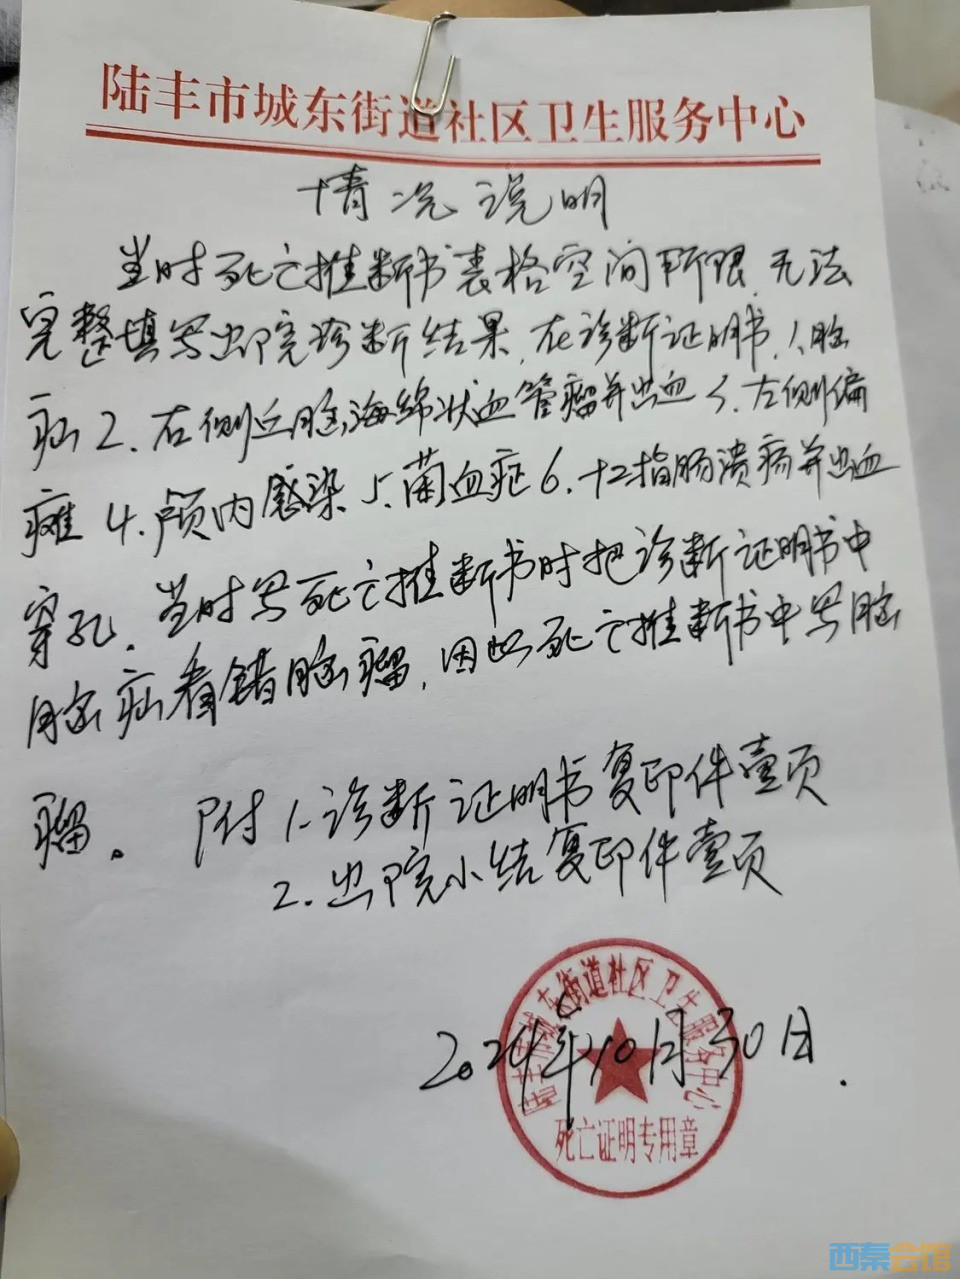 陆丰市城东街道社区卫生服务中心
情况说明
当时死亡推断书表格空间所限,无法
完整填写出院诊断结果,在诊断证明书,1、脑
疝2、右侧丘脑海绵状血管瘤并出血3、左侧偏
瘫4、颅内感染5、菌血症6、十二指肠溃疡并出血
穿孔,当时写死亡推断书时把诊断证明书中
脑疝看错脑瘤,因此死亡推断书中写脑
瘤。 附1、诊断证明书复印件壹页
2、出院小结复印件壹页
陆丰市城东街道社区卫生服务中心
2024年10月30日.
死亡证明专用章
西秦会馆